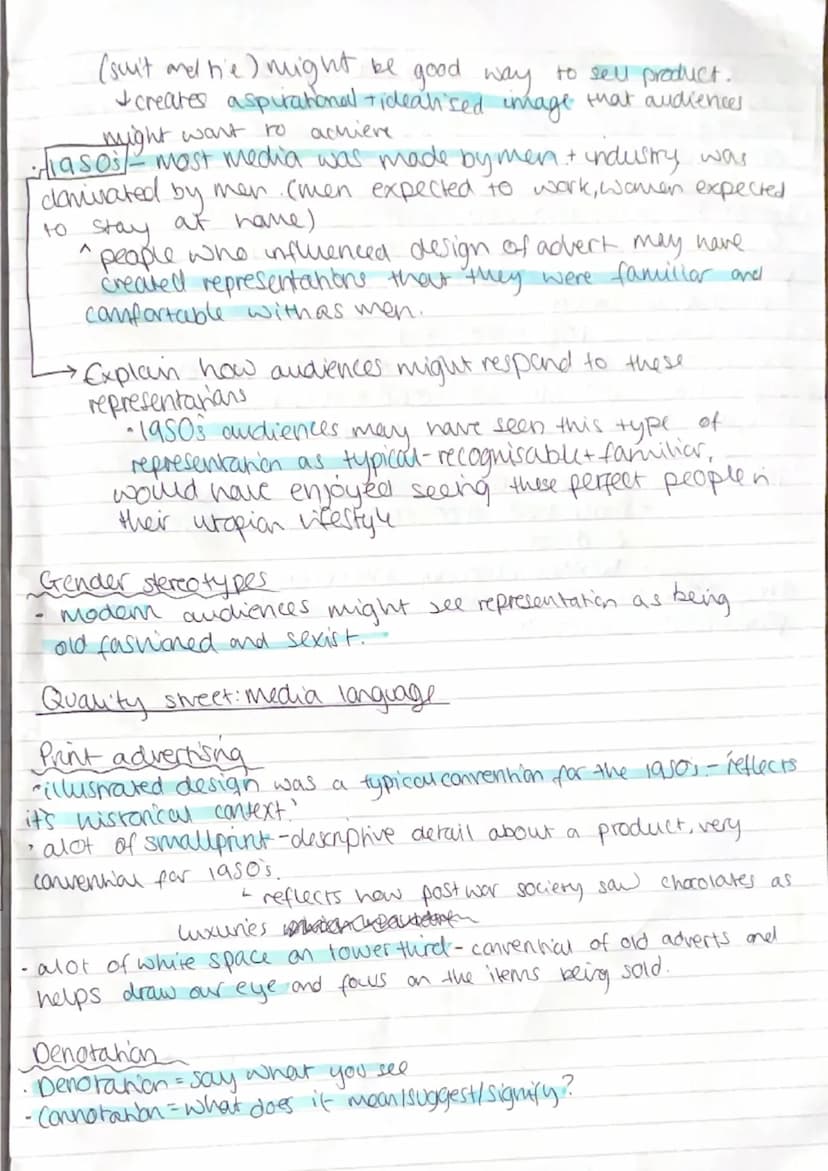 (suit and tie) might be good way to sell product.
↓creates aspirational + idealised image that audiences
might want to achieve
· 1950s - most media was made by men + industry was
dominated by men. (men expected to work, women expected
to stay at home)
^ people who influenced design of advert may have
created representations that they were familiar and
comfortable with as men.
→ Explain how audiences might respond to these
representations
· 1950s audiences may have seen this type of
representation as typical - recognisable + familiar,
would have enjoyed seeing these perfect people in
their utopian lifestyle
Gender stereotypes
- modern audiences might see representation as being
old fashioned and sexist.
Quality street: Media language
Print advertising
· illustrated design was a typical convention for the 1950s - reflects
it's historical context.
· alot of smallprint - descriptive detail about a product, very
convential for 1950s.
↳ reflects how post war society saw chocolates as
luxuries
- alot of white space on lower third - convential of old adverts and
helps draw our eye and focus on the items being sold.
Denotation
· Denotation = say what you see
- Connotation = what does it mean/suggest/signify?